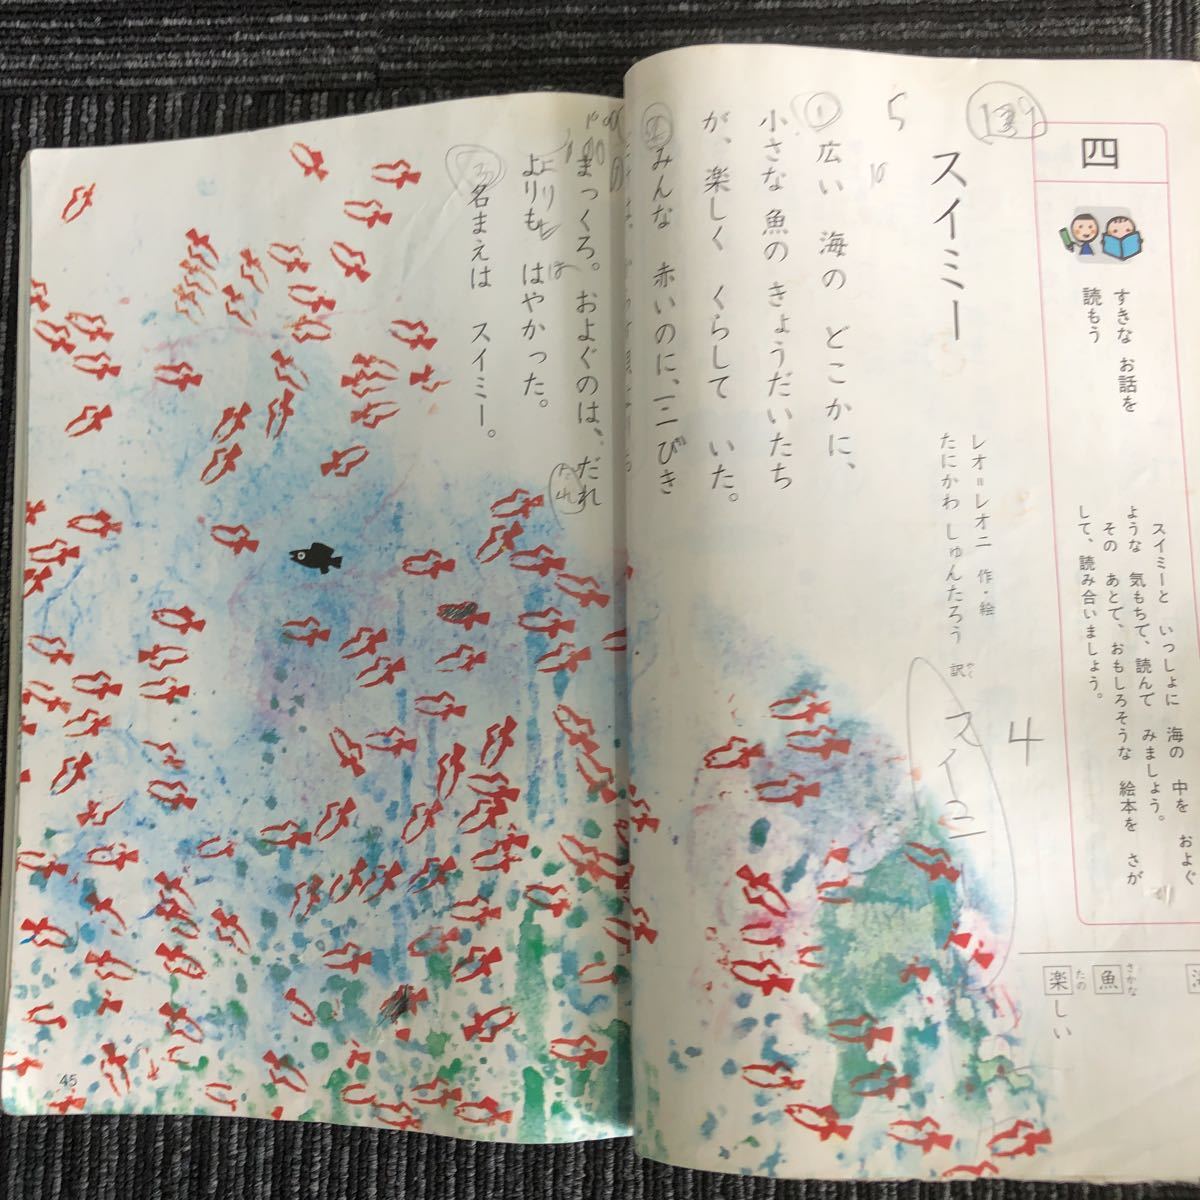 四
すきな お話を
読もう
スイミーと いっしょに 海の 中を およぐ
ような 気もちで、読んで みましょう。
その あとで、おもしろそうな 絵本を さが
して、読み合いましょう。
魚 さかな
楽しい たの
139
4
スイミー
レオ=レオニ 作・絵
たにかわ しゅんたろう 訳 やく
5
10
1
広い 海の どこかに、
小さな 魚の きょうだいたち
が、楽しく くらして いた。
2
みんな 赤いのに、一びき
まっくろ。およぐのは、だれ
だれ
よりも はやかった。
よりも は
3
名まえは スイミー。
45